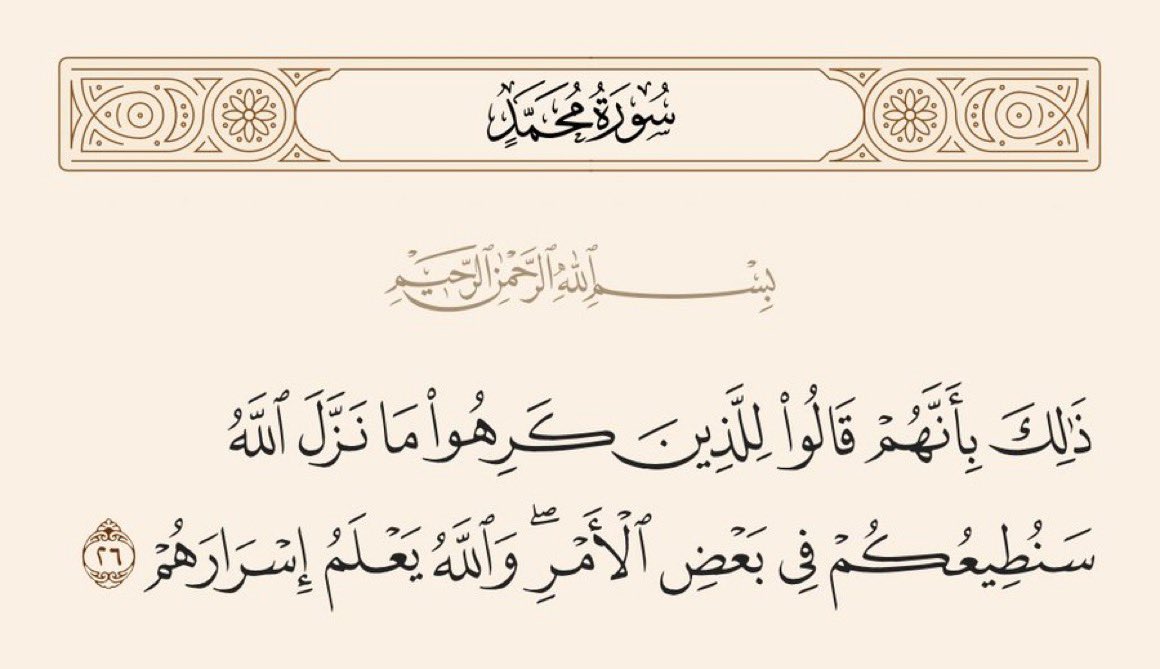 سُورَةُ مُحَمَّدٍ
بِسْمِ ٱللَّهِ ٱلرَّحْمَٰنِ ٱلرَّحِيمِ
ذَٰلِكَ بِأَنَّهُمْ قَالُوا۟ لِلَّذِينَ كَرِهُوا۟ مَا نَزَّلَ ٱللَّهُ
سَنُطِيعُكُمْ فِى بَعْضِ ٱلْأَمْرِ ۖ وَٱللَّهُ يَعْلَمُ إِسْرَارَهُمْ ٢٦